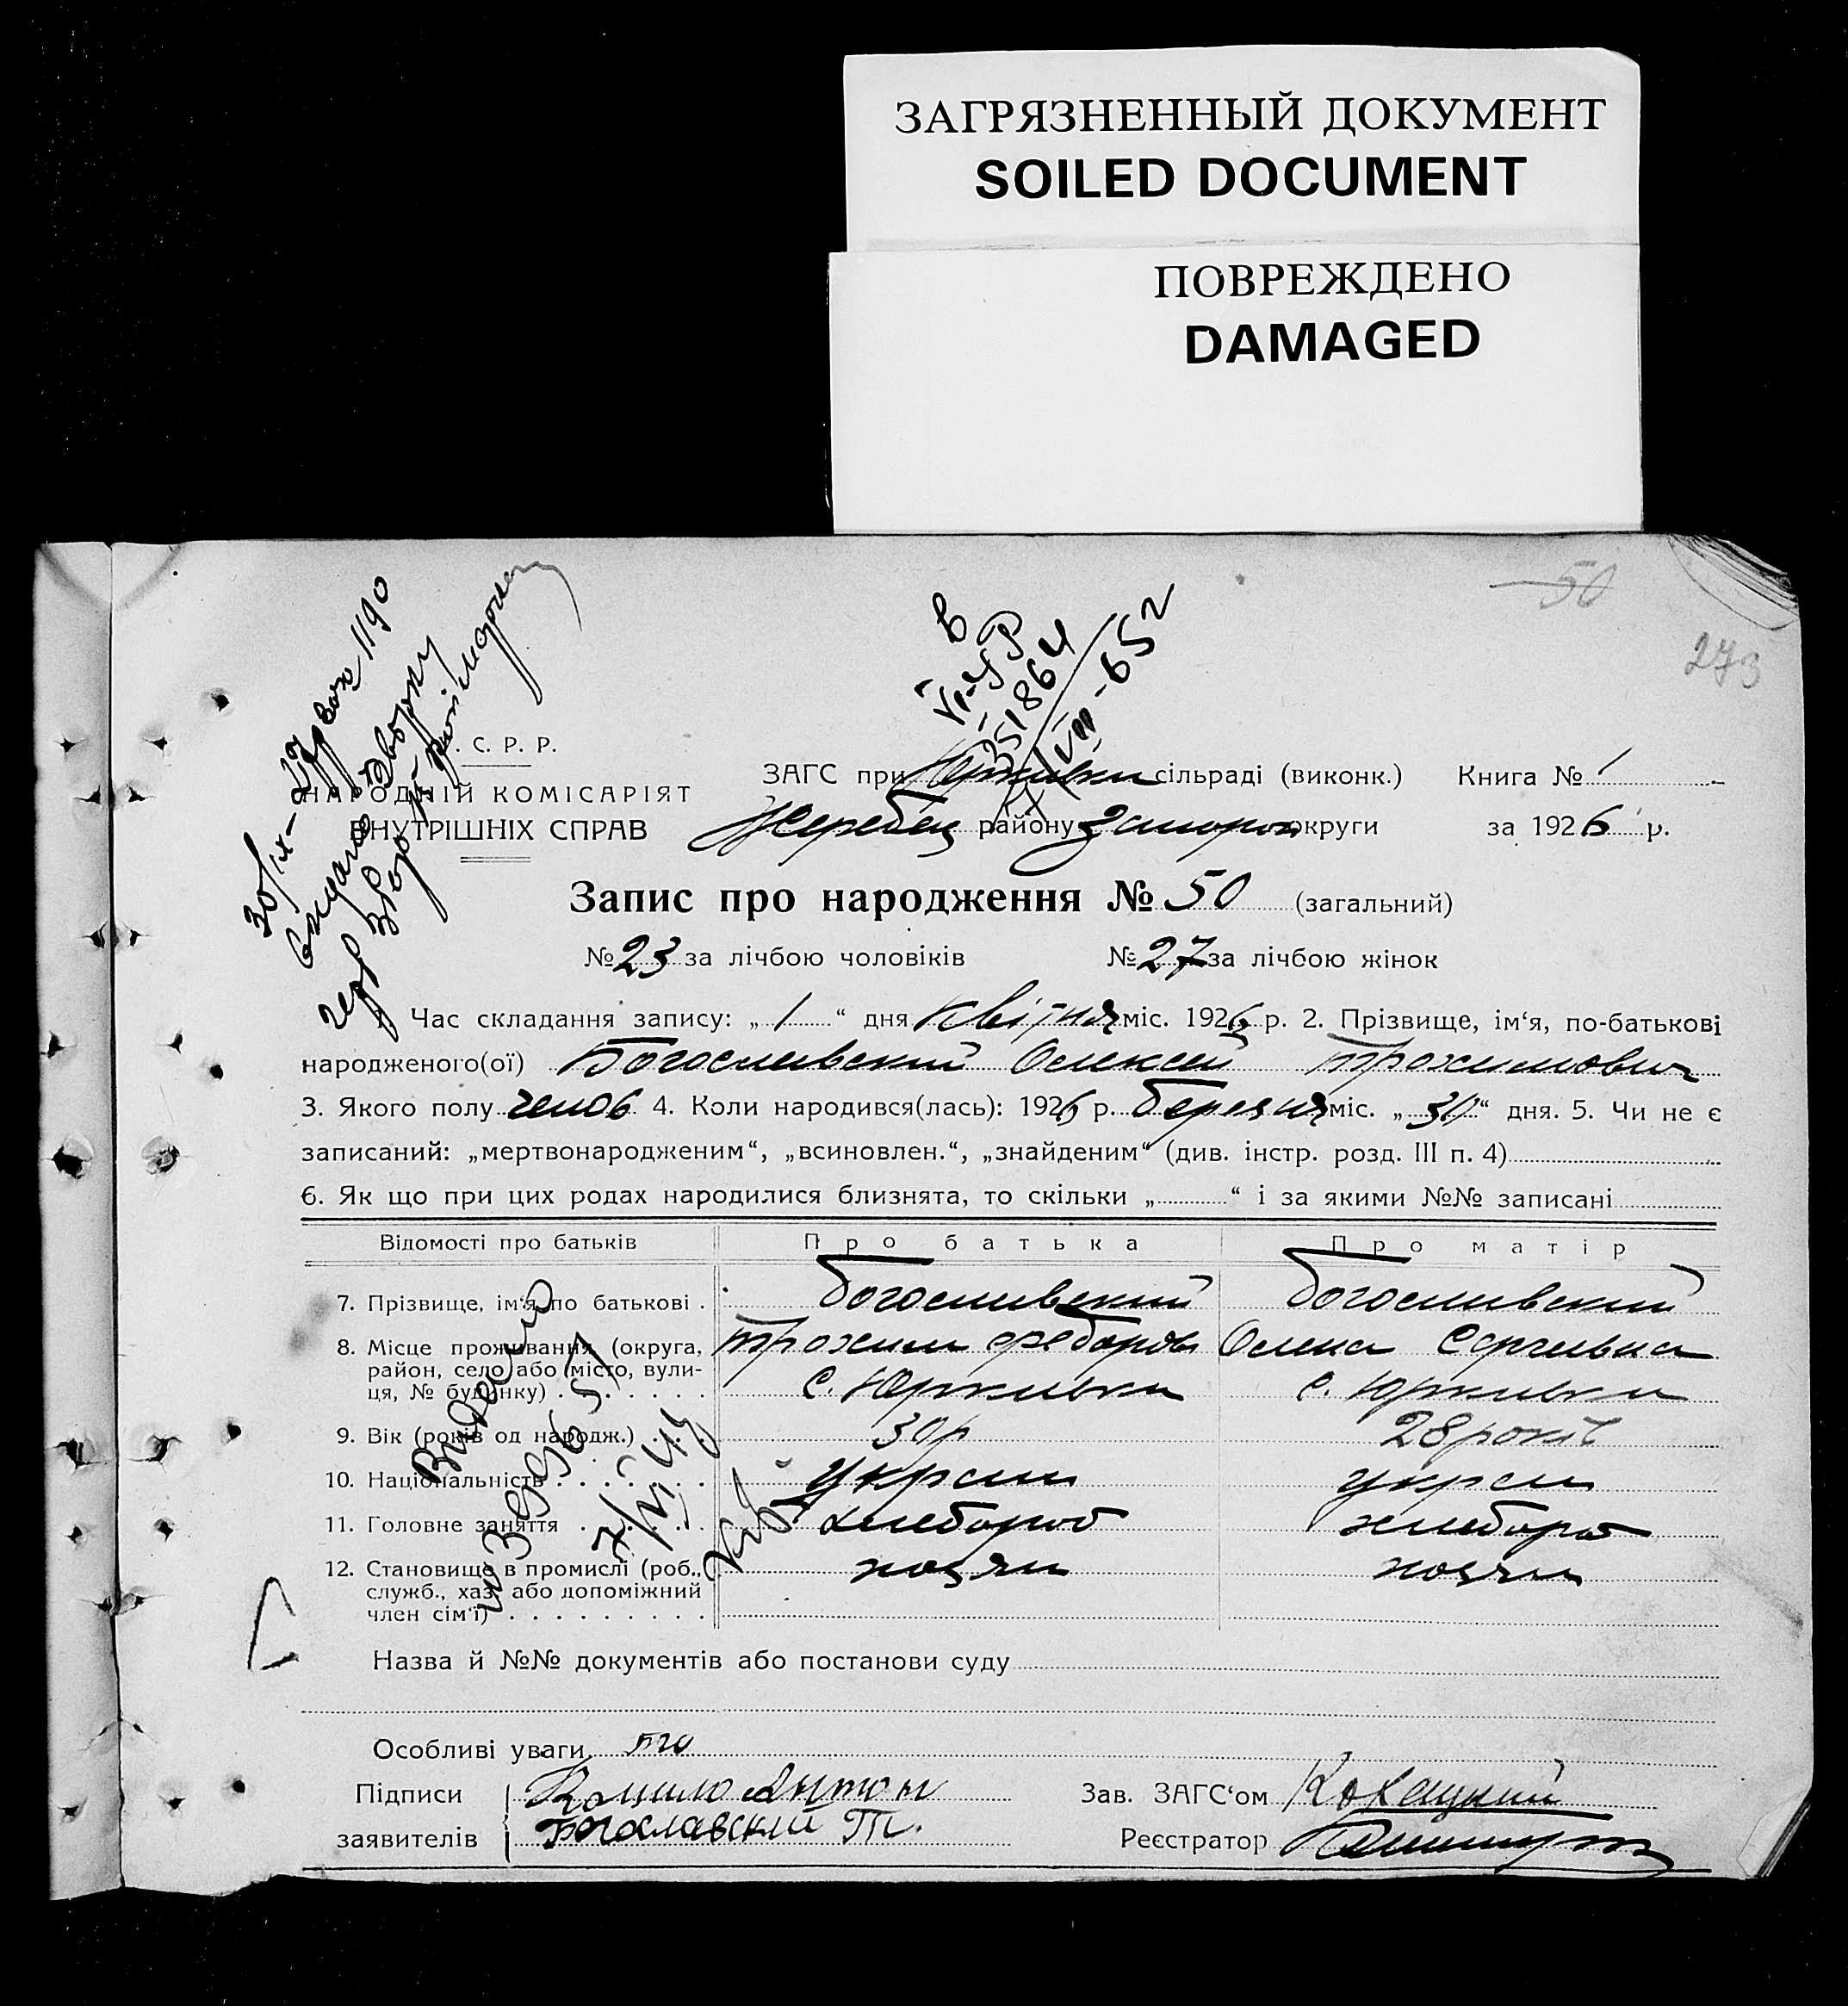 ЗАГРЯЗНЕННЫЙ ДОКУМЕНТ
SOILED DOCUMENT
ПОВРЕЖДЕНО
DAMAGED
50
273
30/ІХ-27
1190
В
VI-УР
351864
VIII-652
. С. Р. Р.
НАРОДНІЙ КОМІСАРІЯТ
ВНУТРІШНІХ СПРАВ
ЗАГС при Юрківки сільраді (виконк.) Книга № 1
Жеребец району Запорож округи за 1926 р.
Запис про народження № 50 (загальний)
№ 23 за лічбою чоловіків № 27 за лічбою жінок
Час складання запису: „ 1 “ дня квітня міс. 1926 р. 2. Прізвище, ім‘я, по-батькові
народженого(ої) Богославский Олексей Трохимович
3. Якого полу чолов 4. Коли народився(лась): 1926 р. березня міс. „ 30 “ дня. 5. Чи не є
записаний: „мертвонародженим“, „всиновлен.“, „знайденим“ (див. інстр. розд. III п. 4)
6. Як що при цих родах народилися близнята, то скільки „ “ і за якими №№ записані
Відомості про батьків Про батька Про матір
7. Прізвище, ім‘я, по батькові . Богославский Богославский
8. Місце проживання (округа, район, село або місто, вулиця, № будинку) Трохим Федоров Олена Сергиевна
с. Юркивки с. Юркивки
9. Вік (років од народж.) 30 р 28 років
10. Національність Украин украин
11. Головне заняття хлебороб хлебороб
12. Становище в промислі (роб., служб., хаз. або допоміжний член сім‘ї) хозяин хозяин
Видано
Назва й №№ документів або постанови суду
Особливі уваги
Підписи Антон
заявителів Богославский Т.
Зав. ЗАГС‘ом
Реєстратор